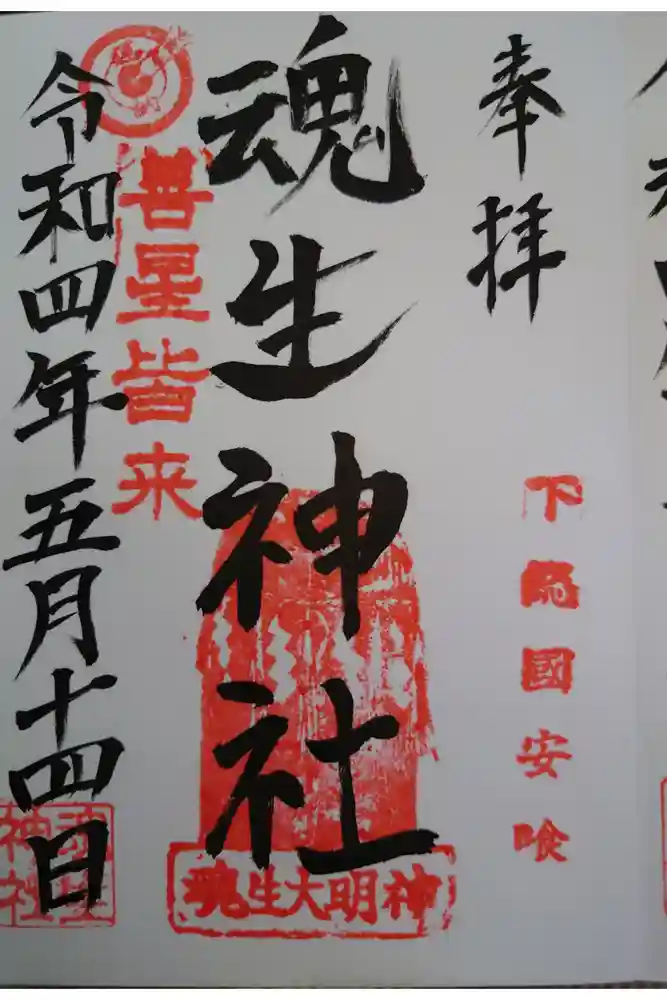 奉拝
下総國安喰
魂生神社
魂生大明神
善星皆来
令和四年五月十四日
魂生神社